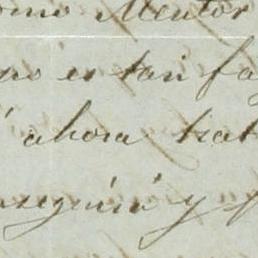 como Mentor
no es tan fa
ahora trat
seguirá y